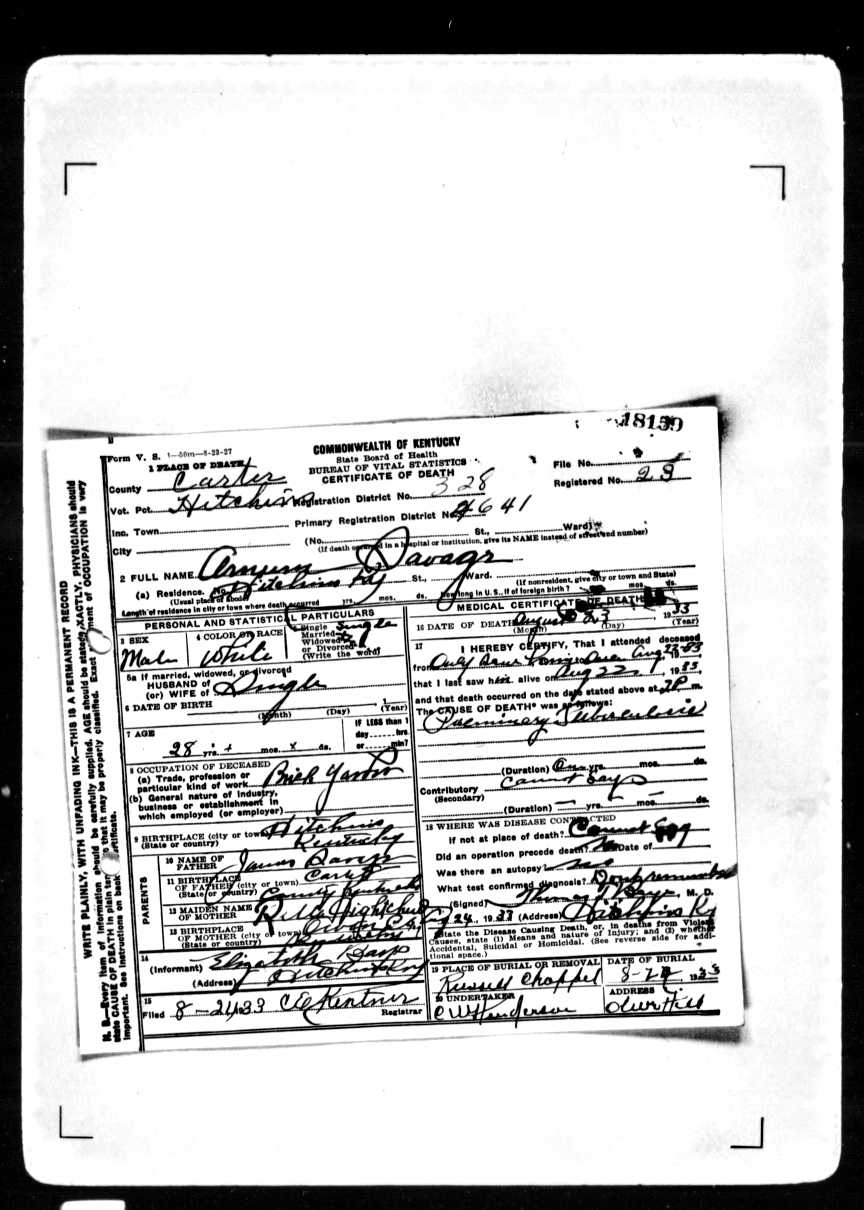 18159
Form V. S. 1—50m—8-23-27
COMMONWEALTH OF KENTUCKY
State Board of Health
BUREAU OF VITAL STATISTICS
CERTIFICATE OF DEATH
1 PLACE OF DEATH
File No.
County Carter
Registered No. 23
Vot. Pct. Hitchins Registration District No. 328
Inc. Town Primary Registration District No. 4641
City (No. St., Ward)
(If death occurred in a hospital or institution, give its NAME instead of street and number)
2 FULL NAME Savage
(a) Residence. No. Hitchins Ky St., Ward.
(Usual place of abode) (If nonresident, give city or town and State)
Length of residence in city or town where death occurred yrs. mos. ds. How long in U.S., if of foreign birth? mos. ds.
PERSONAL AND STATISTICAL PARTICULARS
3 SEX Male
4 COLOR OR RACE White
5 Single Married Widowed or Divorced (Write the word) Single
5a If married, widowed, or divorced
HUSBAND of
(or) WIFE of Single
6 DATE OF BIRTH
(Month) (Day) (Year)
7 AGE
28 yrs. mos. ds.
If LESS than 1 day hrs. or min?
8 OCCUPATION OF DECEASED
(a) Trade, profession or particular kind of work Brick
(b) General nature of industry, business or establishment in which employed (or employer)
9 BIRTHPLACE (city or town) Hitchins
(State or country) Kentucky
PARENTS
10 NAME OF FATHER James Savage
11 BIRTHPLACE OF FATHER (city or town) Carter
(State or country) County Kentucky
12 MAIDEN NAME OF MOTHER
13 BIRTHPLACE OF MOTHER (city or town)
(State or country)
14
(Informant) Elizabeth Savage
(Address) Hitchins Ky
15
Filed 8-24-33 Registrar
MEDICAL CERTIFICATE OF DEATH
16 DATE OF DEATH August 23, 1933
(Month) (Day) (Year)
17 I HEREBY CERTIFY, That I attended deceased
from Only Aug 22, 1933
that I last saw him alive on Aug 22, 1933,
and that death occurred on the date stated above at m.
The CAUSE OF DEATH* was as follows:
Pulminary Tuberculosis
(Duration) yrs. mos. ds.
Contributory Cannot Say
(Secondary)
(Duration) yrs. mos. ds.
18 WHERE WAS DISEASE CONTRACTED
if not at place of death? Cannot Say
Did an operation precede death? No Date of
Was there an autopsy?
What test confirmed diagnosis?
(Signed) M. D.
Aug 24, 1933 (Address) Hitchins Ky
*State the Disease Causing Death, or, in deaths from Violent Causes, state (1) Means and nature of Injury; and (2) whether Accidental, Suicidal or Homicidal. (See reverse side for additional space.)
19 PLACE OF BURIAL OR REMOVAL DATE OF BURIAL
Russell Chappel 8-24 1933
20 UNDERTAKER ADDRESS
C W Henderson Olive Hill
WRITE PLAINLY, WITH UNFADING INK—THIS IS A PERMANENT RECORD
N. B.—Every item of information should be carefully supplied. AGE should be stated EXACTLY. PHYSICIANS should
state CAUSE OF DEATH in plain terms so that it may be properly classified. Exact statement of OCCUPATION is very
important. See instructions on back of certificate.